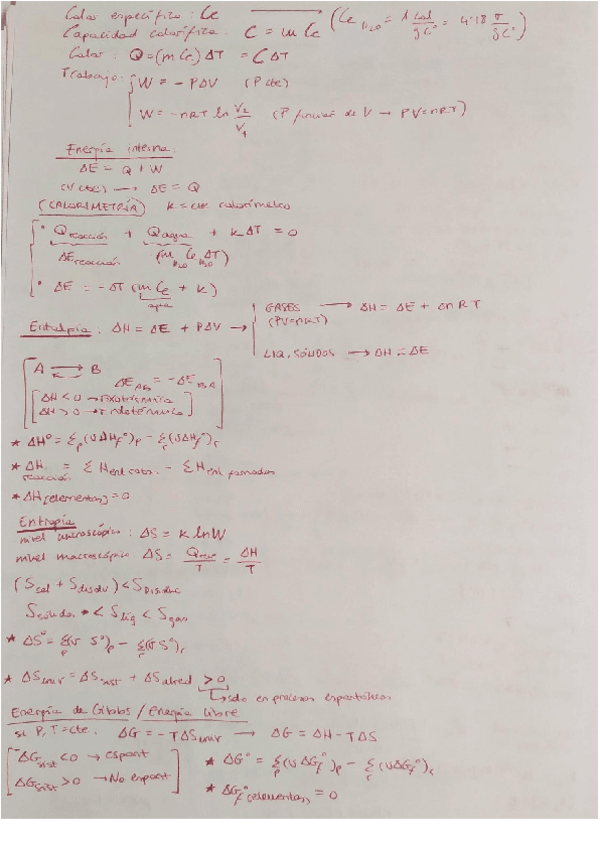 Calor específico : Ce ⟶ (Ce H₂O = 1 cal/gCº = 4'18 J/gCº)
Capacidad calorífica : C = m Ce
Calor : Q = (m Ce) ΔT = C ΔT
Trabajo : W = - PΔV (P cte)
W = -nRT ln V₂/V₁ (P función de V → PV=nRT)
Energía interna :
ΔE = Q + W
(V cte) ⟶ ΔE = Q
(CALORIMETRÍA) K = cte calorímetro
• Qreacción + Qagua + K ΔT = 0
ΔEreacción (m H₂O Ce H₂O ΔT)
• ΔE = - ΔT (m Ce + K)
agua
Entalpía : ΔH = ΔE + PΔV →
GASES ⟶ ΔH = ΔE + Δn RT
(PV=nRT)
LIQ, SÓLIDOS ⟶ ΔH = ΔE
A ⇄ B
ΔE AB = - ΔE BA
ΔH < 0 → Exotérmica
ΔH > 0 → Endotérmica
* ΔHº = Σp (ν ΔHfº)p - Σr (ν ΔHfº)r
* ΔH reacción = Σ H enl rotos - Σ H enl formados
* ΔH (elementos) = 0
Entropía
nivel microscópico : ΔS = K ln W
nivel macroscópico ΔS = Qrev/T = ΔH/T
(Ssol + Sdisolv) < SDisoluc
Ssólido < Sliq < Sgas
* ΔSº = Σp (ν Sº)p - Σr (ν Sº)r
* ΔSuniv = ΔSsist + ΔSalred > 0
↳ sólo en procesos espontáneos
Energía de Gibbs / Energía libre
si P, T = cte. ΔG = - T ΔSuniv ⟶ ΔG = ΔH - T ΔS
ΔGsist < 0 → espont
ΔGsist > 0 → No espont
* ΔGº = Σp (ν ΔGfº)p - Σr (ν ΔGfº)r
* ΔGfº (elementos) = 0